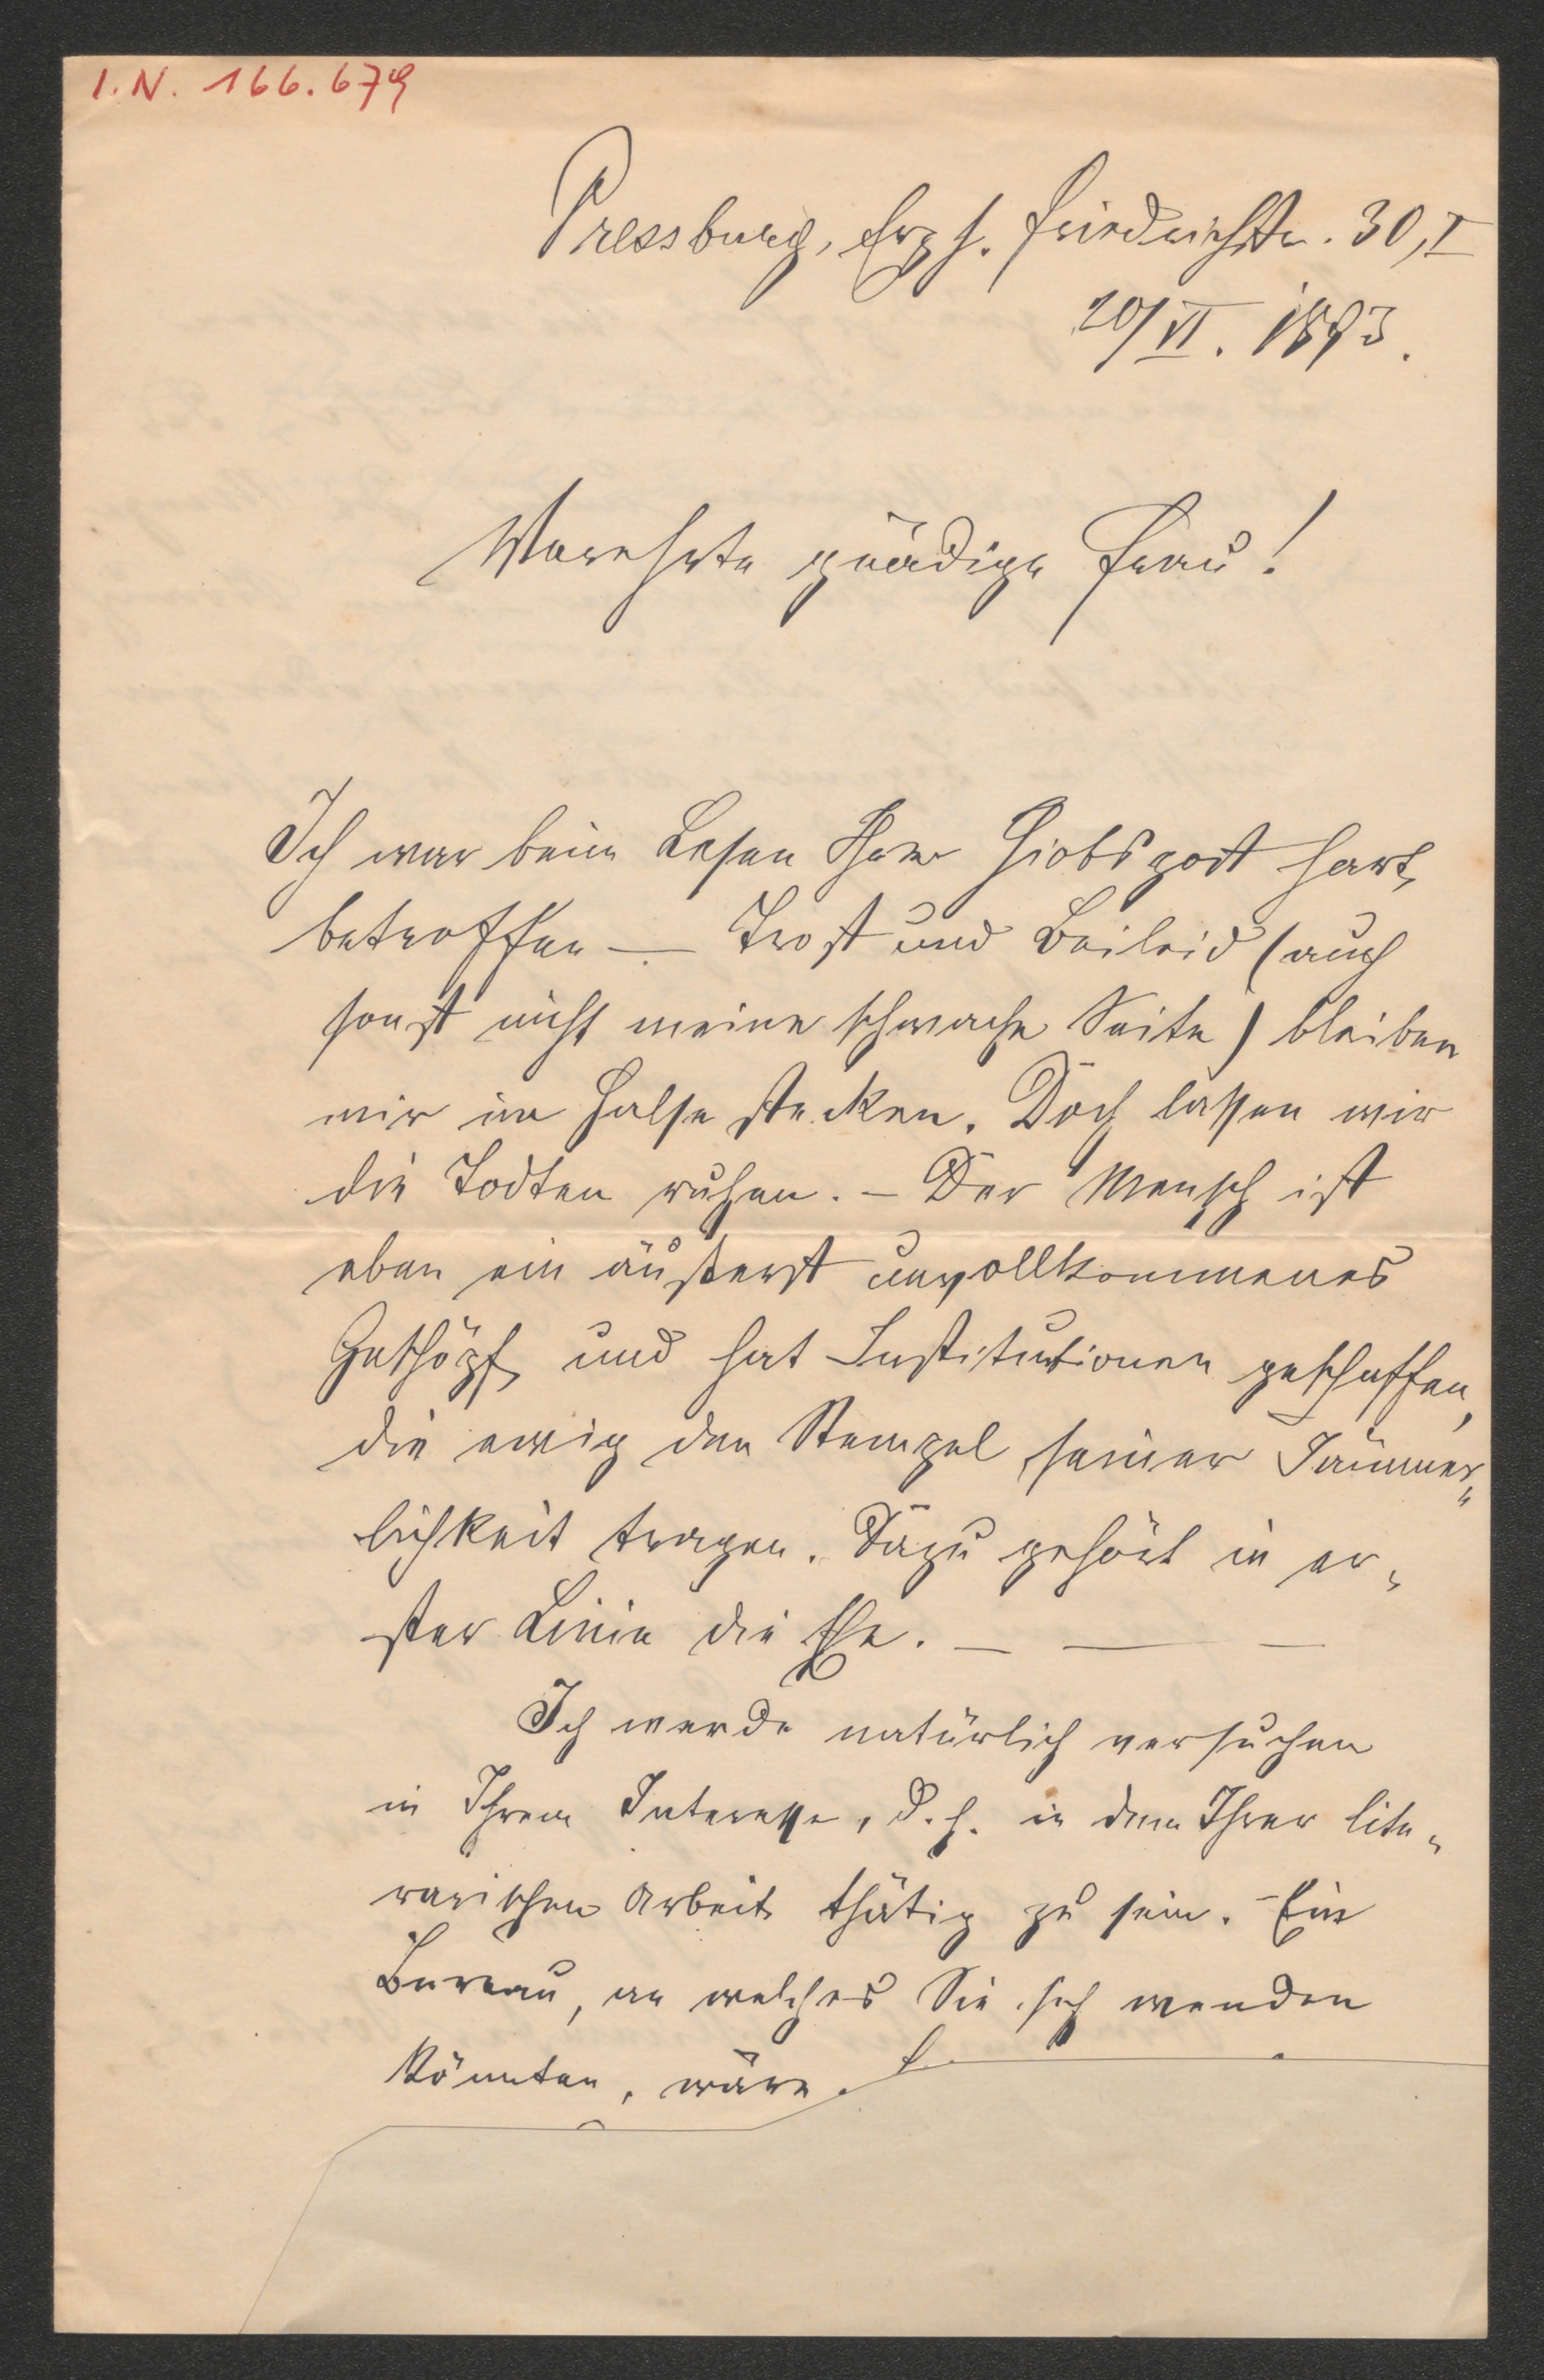 I.N. 166.679
Pressburg, Erzh. Friedrichstr. 30, I
20/VI. 1893.
Verehrte gnädige Frau!
Ich war beim Lesen Ihrer Hiobspost hart
betroffen — Trost und Beileid (auch
sonst nicht meine schwache Seite) bleiben
mir im Halse stecken. Doch lassen wir
die Todten ruhen. – Der Mensch ist
eben ein äußerst unvollkommenes
Geschöpf und hat Institutionen geschaffen,
die ewig den Stempel seiner Jämmer„
lichkeit tragen. Dazu gehört in er„
ster Linie die Ehe. — — —
Ich werde natürlich versuchen
in Ihrem Interesse, d. h. in dem Ihrer lite„
rarischen Arbeit thätig zu sein. – Ein
Bureau, an welches Sie sich wenden
könnten, wäre